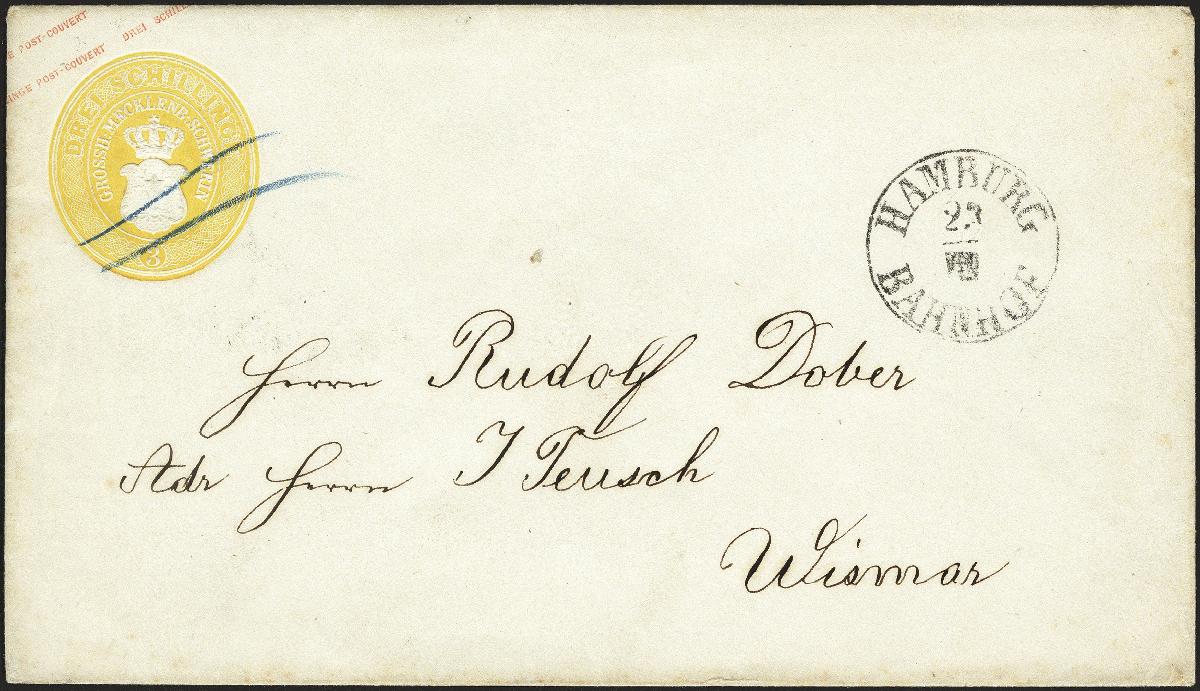 E POST-COUVERT DREI SCHILL
INGE POST-COUVERT
DREI SCHILLING
GROSSH. MECKLENB: SCHWERIN
3
HAMBURG
23
BAHNHOF
Herrn Rudolf Dober
Adr Herrn I Teusch
Wismar